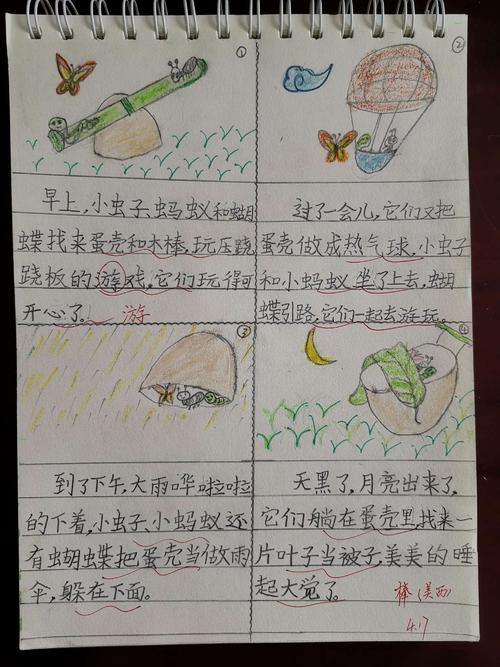 ①
早上,小虫子、蚂蚁和蝴
蝶找来蛋壳和木棒,玩压跷
跷板的游戏,它们玩得可
开心了。 游
②
过了一会儿,它们又把
蛋壳做成热气球,小虫子
和小蚂蚁坐了上去,蝴
蝶引路,它们一起去游玩。
③
到了下午,大雨哗啦啦
的下着,小虫子、小蚂蚁还
有蝴蝶把蛋壳当做雨
伞,躲在下面。
④
天黑了,月亮出来了,
它们躺在蛋壳里,找来一
片叶子当被子,美美的睡
起大觉了。
棒(美画)
4.17